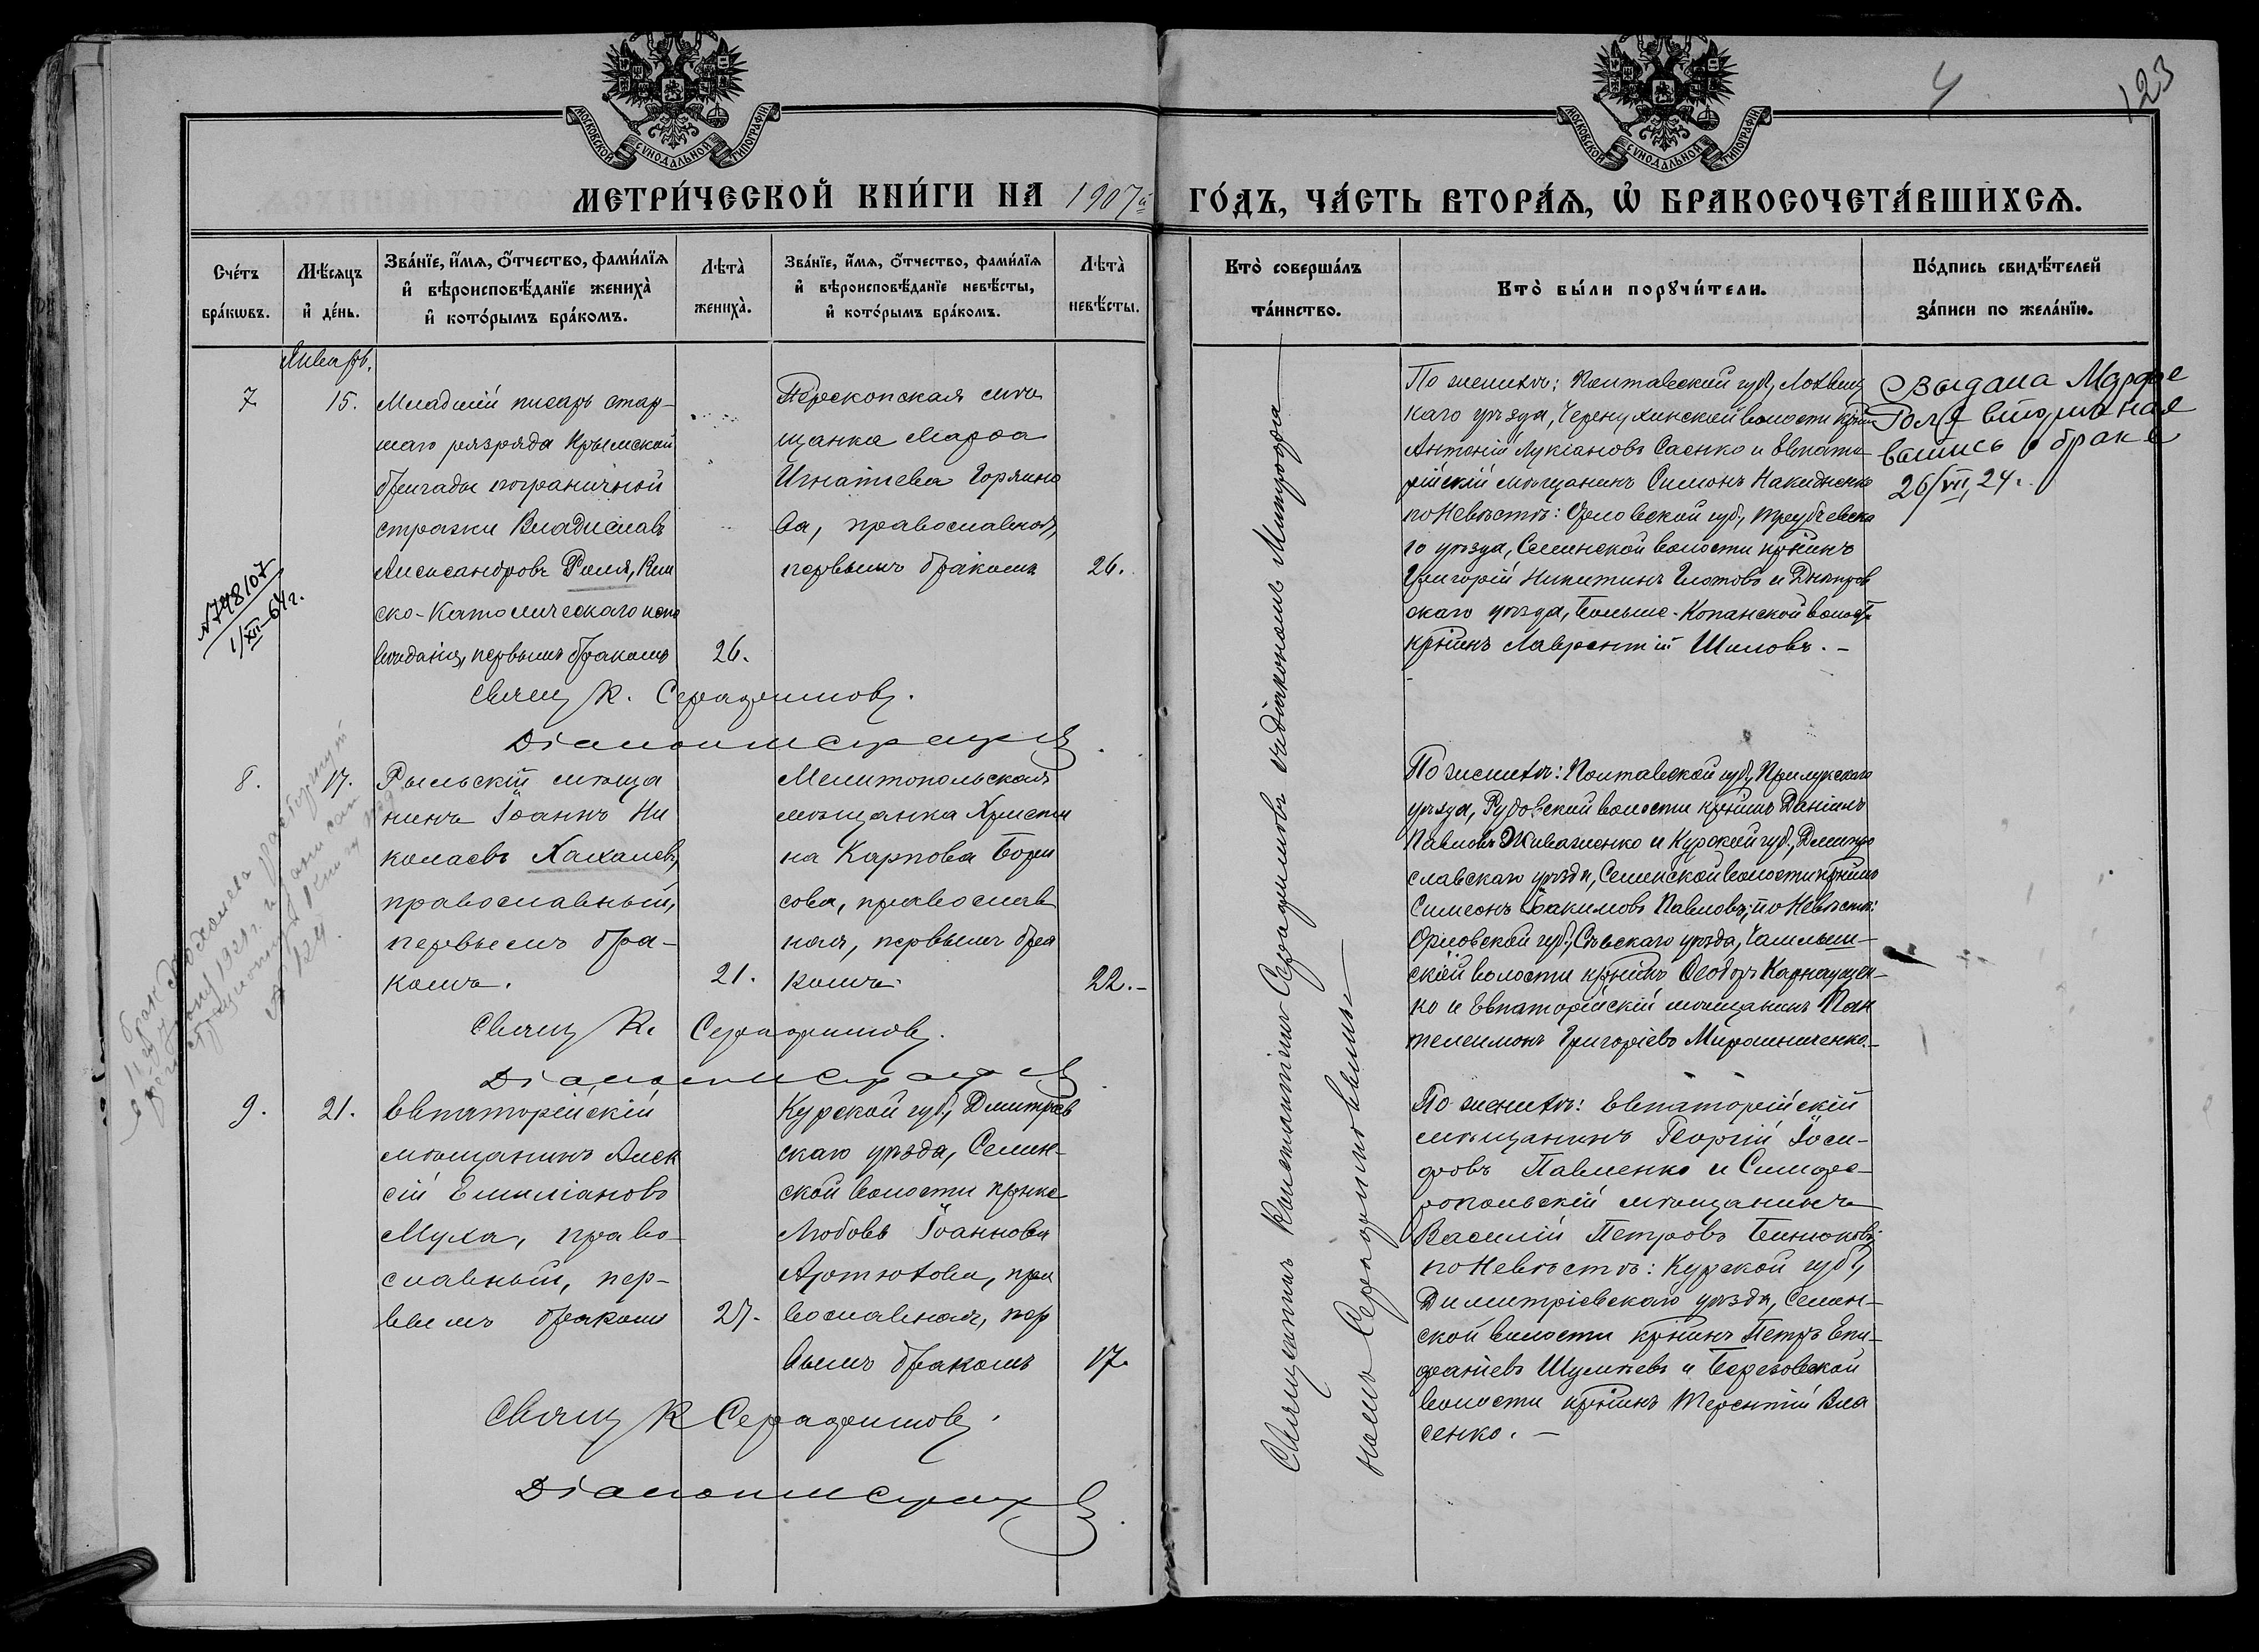 4
123
МОСКОВСКОЙ СѴНОДАЛЬНОЙ ТИПОГРАФІИ
МОСКОВСКОЙ СѴНОДАЛЬНОЙ ТИПОГРАФІИ
МЕТРИ́ЧЕСКОЙ КНИ́ГИ НА 1907й ГО́ДЪ, ЧА́СТЬ ВТОРА́Ѧ, Ѡ БРАКОСОЧЕТА́ВШИХСѦ.
Сче́тъ
бра́кѡвъ.
Мѣ́сяцъ
и҆ де́нь.
Зва́нїе, и҆́мѧ, ѻ҆́тчество, фами́лїѧ
и҆ вѣроисповѣ́данїе жениха̀
и҆ кото́рымъ бра́комъ.
Лѣта̀
жениха̀.
Зва́нїе, и҆́мѧ, ѻ҆́тчество, фами́лїѧ
и҆ вѣроисповѣ́данїе невѣ́сты,
и҆ кото́рымъ бра́комъ.
Лѣта̀
невѣ́сты.
Кто̀ соверша́лъ
та́инство.
Кто̀ бы́ли порꙋчи́тели.
По́дпись свидѣ́телей
за́писи по жела́нїю.
Январь.
7
15.
Младшій писарь стар-
шаго разряда Крымской
бригады пограничной
стражи Владиславъ
Александровъ Роля, Рим
ско-Католическаго испо
вѣданія, первымъ бракомъ
26.
Перекопская мѣ
щанка Марѳа
Игнатіева Горяино
ва, православной,
первымъ бракомъ
26.
Свящ К. Серафимовъ.
Діаконъ М Серафим
По женихѣ: Полтавской губ., Лохвиц
каго уѣзда, Чернухинской волости крнин
Антоній Лукіановъ Саенко и Евпато
рійскій мѣщанинъ Симонъ Накидненко
по Невѣстѣ: Орловской губ., Трубчевска
го уѣзда, Селинской волости крнинъ
Григорій Никитинъ Глотовъ и Днѣпров
скаго уѣзда, Больше-Копанской волост
крнинъ Лаврентій Шиловъ.-
Выдана Марфе
Роля вторичная
выпись о браке
26/VII, 24.
№748/07
1/XII-64 г.
8.
17.
Рыльскій мѣща
нинъ Іоаннъ Ни
колаевъ Хахалевъ,
православный,
первымъ бра-
комъ.
21.
Мелитопольская
мѣщанка Христи
на Карпова Бори
сова, православ
ная, первымъ бра
комъ
22.-
Свящ К. Серафимовъ.
Діаконъ М Серафим
По женихѣ: Полтавской губ, Прилукскаго
уѣзда, Рудовской волости крнинъ Даніилъ
Павловъ Живаженко и Курской губ., Дмитро
славскаго уѣзда, Селинской волости крнинъ
Симеонъ Іоакимовъ Павловъ; по Невѣстѣ:
Орловской губ, Сѣвскаго уѣзда,
ской волости крнинъ Ѳеодоръ Карнаущен-
ко и Евпаторійскій мѣщанинъ Пан
телеимонъ Григоріевъ Мирошниченко.-
9.
21.
Евпаторійскій
мѣщанинъ Алек
сій Емиліановъ
Муха, право-
славный, пер-
вымъ бракомъ
27.
Курской губ, Дмитріев
скаго уѣзда, Селин-
ской волости крнка
Любовь Іоаннова
Артюхова, пра
вославная, пер
вымъ бракомъ
17.
Свящ К Серафимовъ.
Діаконъ М Серафим
По женихѣ: Евпаторійскій
мѣщанинъ Георгій Іоси-
фовъ Павленко и Симфе-
ропольскій мѣщанинъ
Василій Петровъ Бинюковъ;
по Невѣстѣ: Курской губ,
Димитріевскаго уѣзда, Селин-
ской волости крнинъ Петръ Епи-
фаніевъ Шумаевъ и Березовской
волости крнинъ Терентій Вла
сенко.-
Священникъ Константинъ Серафимовъ съ діакономъ Митрофа
номъ Серафимовымъ